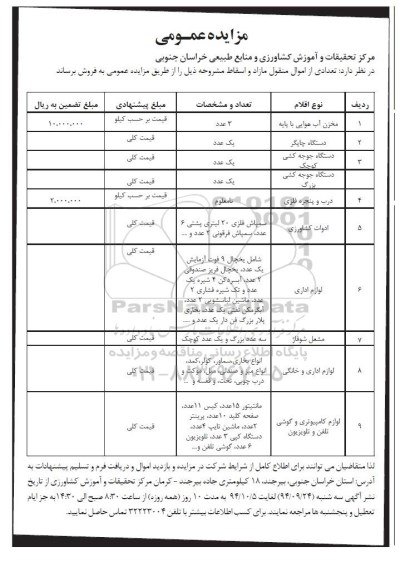 مزایده عمومی
مرکز تحقیقات و آموزش کشاورزی و منابع طبیعی خراسان جنوبی
در نظر دارد: تعدادی از اموال منقول مازاد و اسقاط مشروحه ذیل را از طریق مزایده عمومی به فروش برساند
ردیف نوع اقلام تعداد و مشخصات مبلغ پیشنهادی مبلغ تضمین به ریال
۱ مخزن آب هوایی با پایه ۳ عدد قیمت بر حسب کیلو ۱۰.۰۰۰.۰۰۰
۲ دستگاه چاپگر یک عدد قیمت کلی
۳ دستگاه جوجه کشی کوچک یک عدد قیمت کلی
دستگاه جوجه کشی بزرگ یک عدد قیمت کلی
۴ درب و پنجره فلزی نامعلوم قیمت بر حسب کیلو ۲.۰۰۰.۰۰۰
۵ ادوات کشاورزی سمپاش فلزی ۲۰ لیتری پشتی ۶ قیمت کلی
عدد، سمپاش فرقونی ۲ عدد و ...
۶ لوازم اداری شامل یخچال ۹ فوت آزمایش قیمت کلی
یک عدد، یخچال فریز صندوقی
۲ عدد، آبسردکن ۴ شیره یک
عدد و تک شیره فشاری ۲
عدد، ماشین لباسشویی ۲ عدد،
آبگرمکن نفتی یک عدد، بخاری
پلار بزرگ فن دار یک عدد و ...
۷ مشعل شوفاژ سه عدد بزرگ و یک عدد کوچک قیمت کلی
۸ لوازم اداری و خانگی انواع بخاری، سماور، کولر، کمد، قیمت کلی
انواع میز و صندلی، مبل، موکت و
درب چوبی، تخت، و قفسه و ...
۹ لوازم کامپیوتری و گوشی تلفن و تلویزیون مانیتور ۱۵عدد، کیس ۱۱عدد، قیمت کلی
صفحه کلید ۱۰عدد، پرینتر
۲عدد، ماشین تایپ ۴عدد،
دستگاه کپی ۳ عدد، تلویزیون
۶ عدد، گوشی تلفن و...
لذا متقاضیان می توانند برای اطلاع کامل از شرایط شرکت در مزایده و بازدید اموال و دریافت فرم و تسلیم پیشنهادات به
آدرس: استان خراسان جنوبی، بیرجند، ۱۸ کیلومتری جاده بیرجند - کرمان مرکز تحقیقات و آموزش کشاورزی از تاریخ
نشر آگهی سه شنبه (۹۴/۰۹/۲۴) لغایت ۹۴/۱۰/۵ به مدت ۱۰ روز (همه روزه) از ساعت ۸:۳۰ صبح الی ۱۴:۳۰ به جز ایام
تعطیل و پنجشنبه ها مراجعه نمایند. برای کسب اطلاعات بیشتر با تلفن ۳۲۲۲۳۰۰۴ تماس حاصل نمایید.
ParsNamadData
پایگاه اطلاع رسانی مناقصه و مزایده